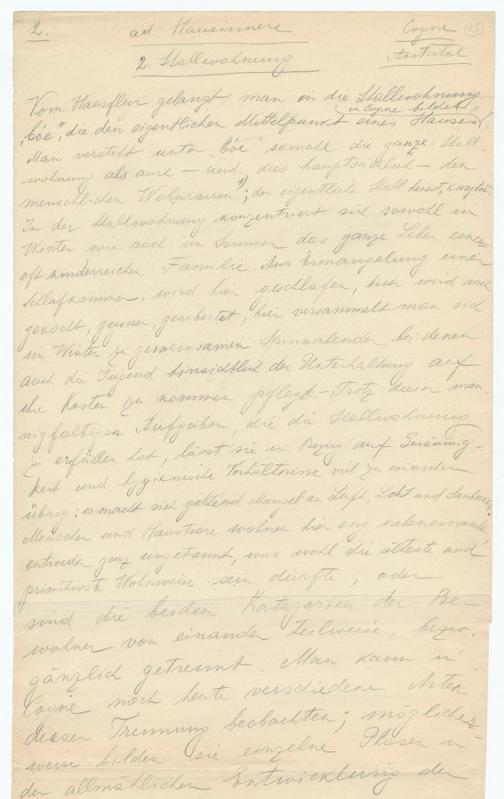 2. ad. Hausinnere Cogne
2. Stallwohnung Aostatal
Vom Hausflur gelangt man in die Stallwohnung
"bóe", die den eigentlichen Mittelpunkt eines Hauses in Cogne bildet.
Man versteht unter "bóe" sowohl die ganze Stall-
wohnung als auch – und dies hauptsächlich – den
menschlichen Wohnraum; der eigentliche Stall heisst
In der Stallwohnung konzentriert sich sowohl im
Winter wie auch im Sommer das ganze Leben einer
oft kinderreichen Familie. Aus Ermangelung einer
Schlafkammer, wird hier geschlafen, hier wird auch
gekocht, gearbeitet, hier versammelt man sich
im Winter zu gemeinsamen Spinnabenden, bei denen
auch die Jugend hinsichtlich der Unterhaltung auf
ihre Kosten zu kommen pflegt. – Trotz dieser man-
nigfaltigen Aufgaben, die die Stallwohnung
zu erfüllen hat, lässt sie in Bezug auf Geräumig-
keit und hygienische Verhältnisse viel zu wünschen
übrig: es macht sich geltend Mangel an Luft, Licht und Sauberkeit.
Menschen und Haustiere wohnen hier eng nebeneinander,
entweder ganz ungetrennt, was wohl die älteste und
primitivste Wohnweise sein dürfte, oder
sind die beiden Kategorien der Be-
wohner von einander teilweise, bezw.
gänzlich getrennt. Man kann in
Cogne noch heute verschiedene Arten
dieser Trennung beobachten; möglicher-
weise bilden sie einzelne Phasen in
der allmählichen Entwicklung der